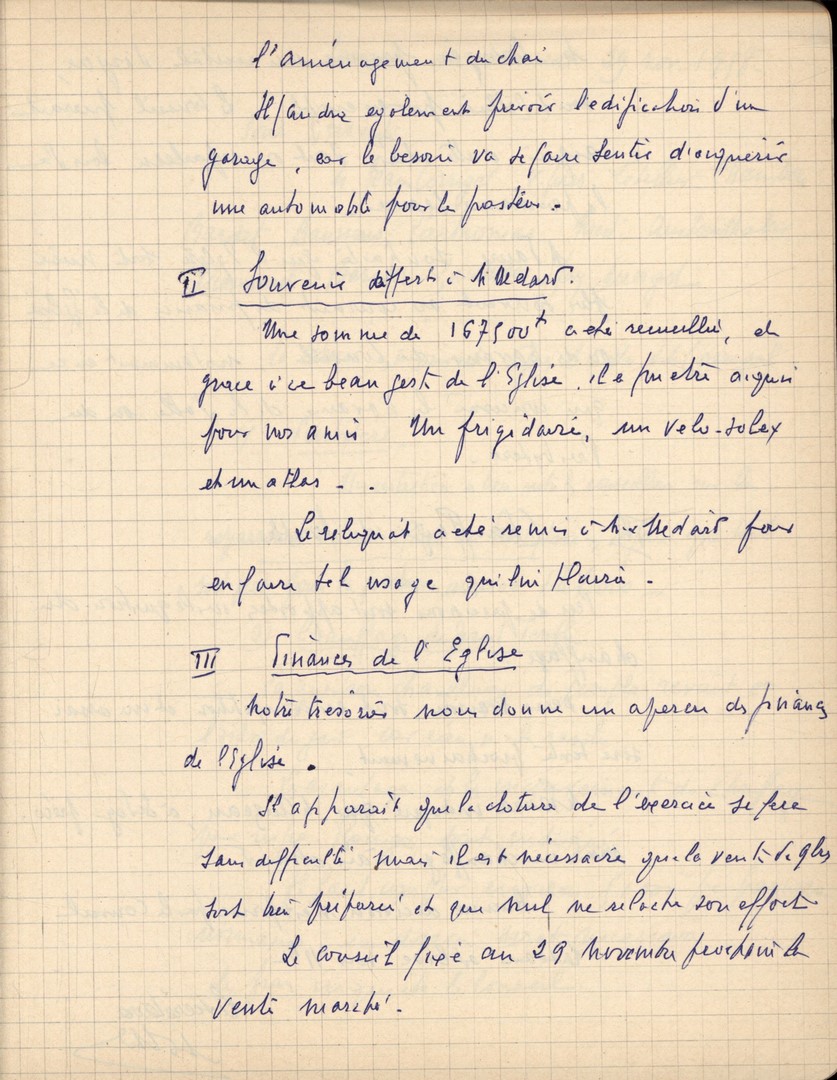 l'aménagement du chai
Il faudra egalement prévoir l'edification d'un
garage, car le besoin va se faire sentir d'acquerir
une automobile pour le pasteur.
II Souvenir offert à Mr Medard.
Une somme de 167500f a eté recueillie, et
grace à ce beau geste de l'Eglise, il a pu etre acquis
pour nos amis Un frigidaire, un velo-solex
et un atlas - .
Le reliquat a eté remis à Mr Medard pour
en faire tel usage qui lui plaira -
III Finances de l'Eglise
Notre trésorier nous donne un apercu des finances
de l'Eglise.
Il apparait que la cloture de l'exercice se fera
sans difficulté mais il est nécessaire que la vente
soit bien préparée et que nul ne relache son effort
Le conseil fixe au 29 novembre prochain la
vente marché.